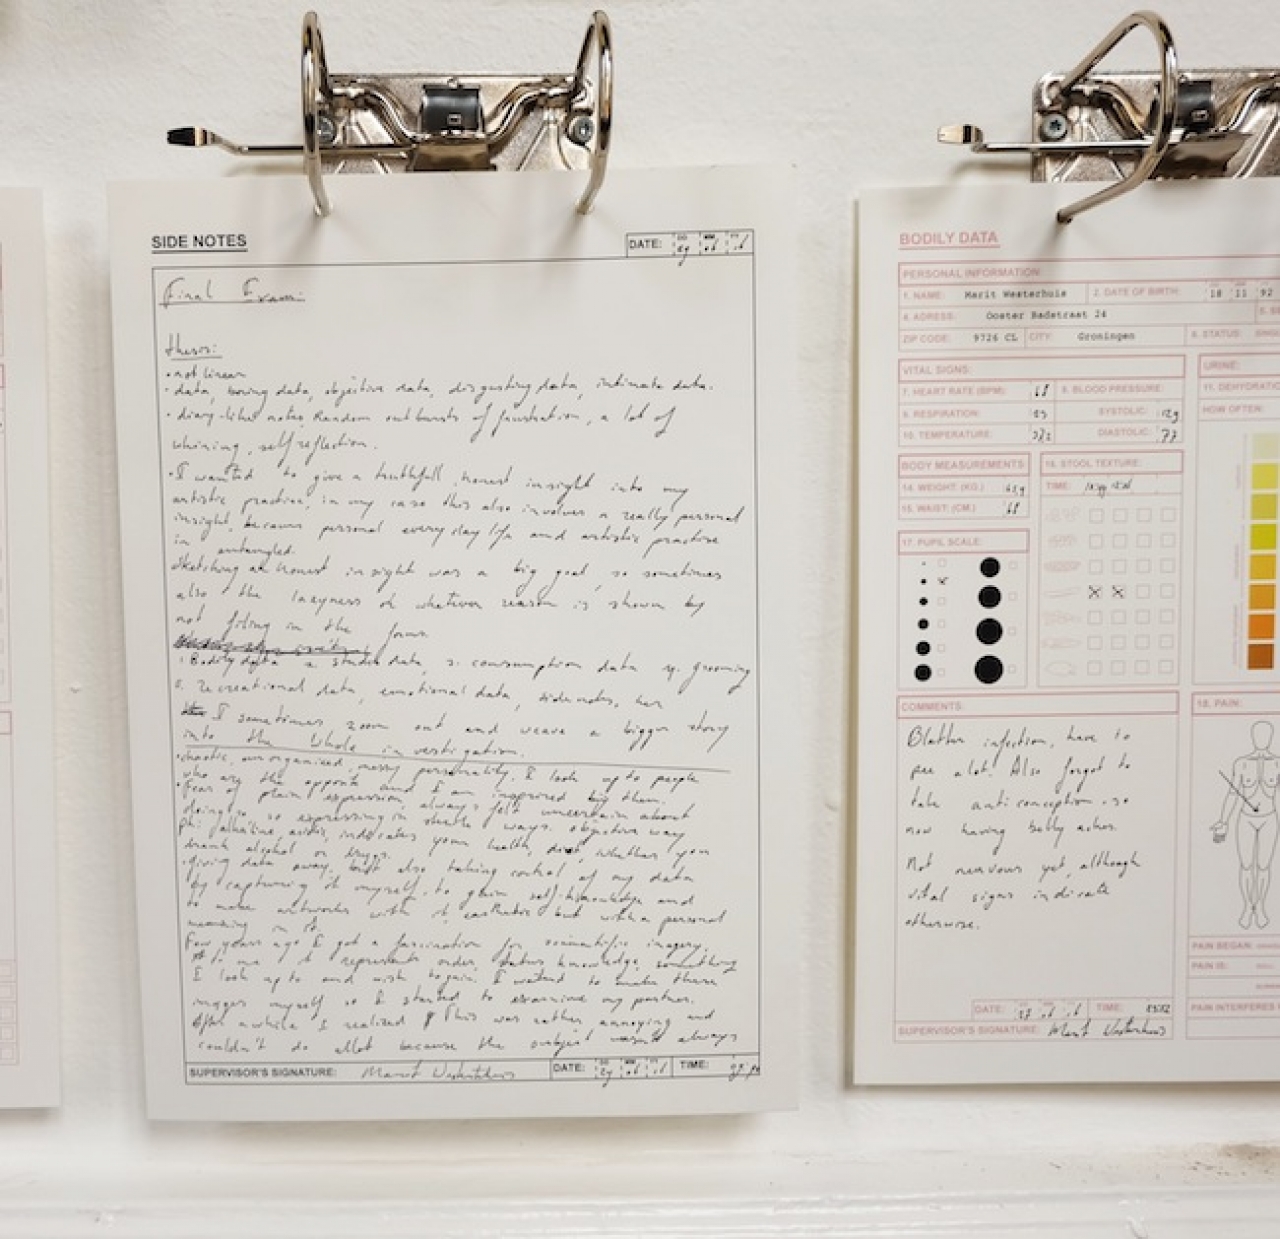 SIDE NOTES
DATE: DD MM YY
Final Exam:
thesis:
• not linear
• data, boring data, objective data, disgusting data, intimate data.
• diary-like notes Random outbursts of frustration, a lot of
whining, self reflection.
• I wanted to give a truthfull, honest insight into my
artistic practice, in my case this also involves a really personal
insight, because personal every day life and artistic practise
is entangled.
Sketching an honest insight was a big goal, so sometimes
also the lazyness or whatever reason is shown by
not filing in the form.
Bodily data, consumption data, grooming
recreational data, emotional data, sidenotes,
I sometimes zoom out and weave a bigger story
into the whole investigation.
• chaotic, unorganised, messy personality. I look up to people
who are the opposite and I am inspired by them.
• Fear of plain expression, always felt uncertain about
doing so, so expressing in other ways. objective way
ph: alkaline, acidic, indicates your health, diet, whether you
drank alcohol or drugs.
• giving data away, but also taking control of my data
by capturing it myself, to gain self-knowledge and
to make artworks with it, esthetic but with a personal
meaning in it.
Few years ago I got a fascination for scientific imagery.
to me it represents order, status, knowledge, something
I look up to and wish to gain. I wanted to make these
images myself so I started to examine my partner.
After a while I realized this was rather annoying and
couldn't do allot because the subject wasn't always
SUPERVISOR'S SIGNATURE: Marit Westerhuis DATE: DD MM YY TIME:
BODILY DATA
PERSONAL INFORMATION
1. NAME: Marit Westerhuis 2. DATE OF BIRTH: 18 11 92
4. ADRESS: Ooster Badstraat 24
ZIP CODE: 9726 CL CITY: Groningen 6. STATUS:
VITAL SIGNS:
7. HEART RATE (BPM): 68 8. BLOOD PRESSURE:
9. RESPIRATION: SYSTOLIC: 129
10. TEMPERATURE: DIASTOLIC: 77
URINE:
11. DEHYDRATIO
HOW OFTEN:
BODY MEASUREMENTS
14. WEIGHT: (KG.)
15. WAIST: (CM.) 68
STOOL TEXTURE:
TIME:
17. PUPIL SCALE:
COMMENTS:
Blatter infection, have to
pee alot! Also forgot to
take anticonception. so
now having belly aches.
Not nervous yet, although
vital signs indicate
otherwise.
DATE: TIME:
SUPERVISOR'S SIGNATURE: Marit Westerhuis
18. PAIN:
PAIN BEGAN:
PAIN IS:
PAIN INTERFERES